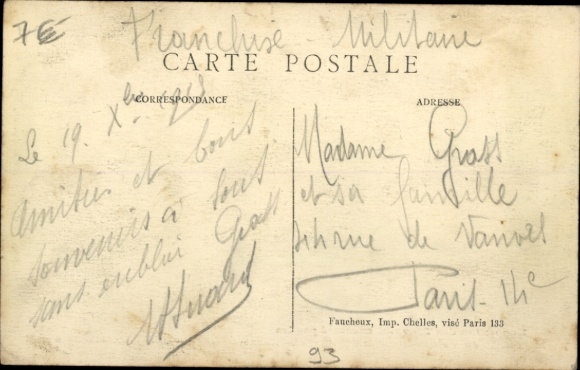 7€
Franchise Militaire
CARTE POSTALE
CORRESPONDANCE
ADRESSE
Le 19. Xbre 1918
Amitiés et bons
souvenirs à tous
sans oublier Grass
Madame Grass
et sa famille
rue de Vanves
Paris-14e
Faucheux, Imp. Chelles, visé Paris 133
93